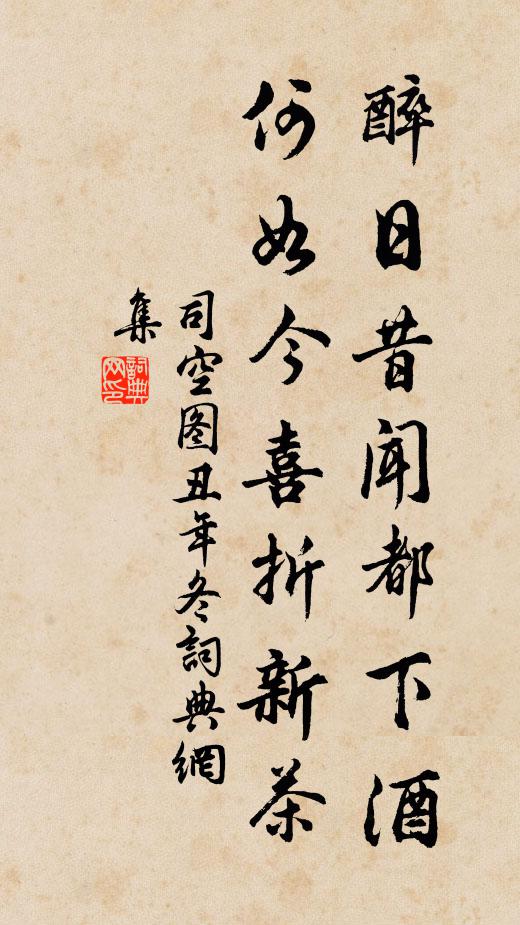 醉日昔聞都下酒
何如今喜折新茶
司空图丑年冬詞典網
集
詞典網印